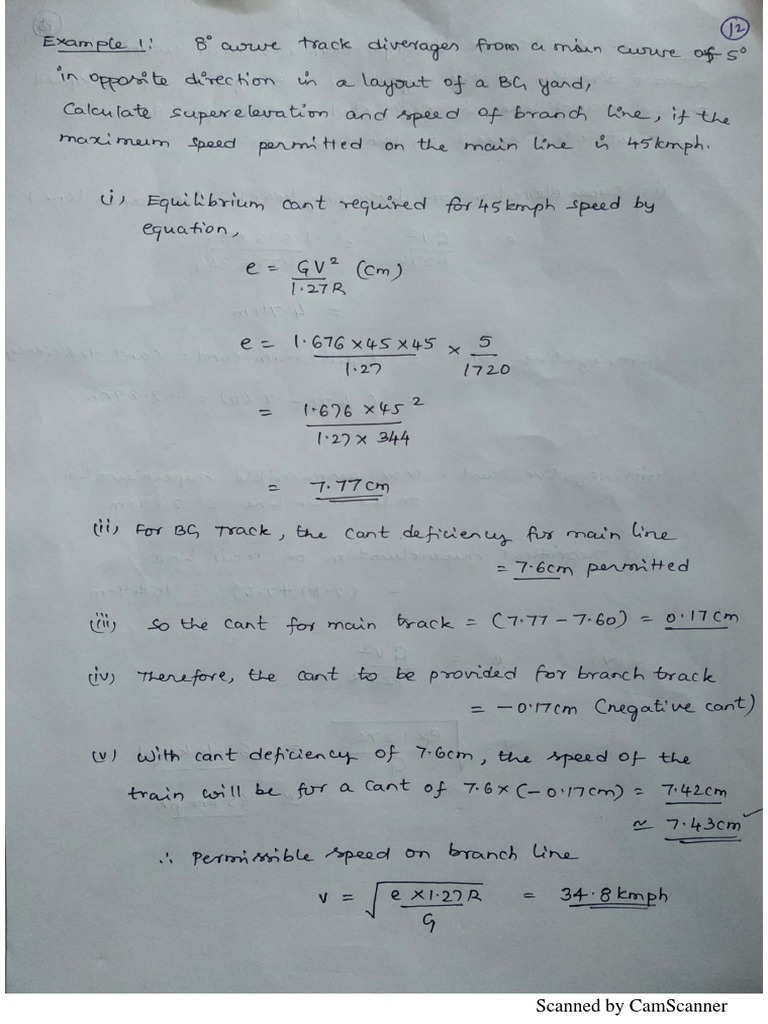 12
Example 1: 8° curve track diverages from a main curve of 5°
in opposite direction in a layout of a BG yard,
Calculate superelevation and speed of branch line, if the
maximum speed permitted on the main line is 45kmph.
(i) Equilibrium cant required for 45kmph speed by
equation,
e = GV² / 1.27R (cm)
e = 1.676 × 45 × 45 / 1.27 × 5 / 1720
= 1.676 × 45² / 1.27 × 344
= 7.77cm
(ii) For BG Track, the cant deficiency for main line
= 7.6cm permitted
(iii) So the cant for main track = (7.77 - 7.60) = 0.17cm
(iv) Therefore, the cant to be provided for branch track
= -0.17cm (negative cant)
(v) With cant deficiency of 7.6cm, the speed of the
train will be for a cant of 7.6 × (-0.17cm) = 7.42cm
≃ 7.43cm ✓
∴ Permissible speed on branch line
v = √(e × 1.27R / G) = 34.8kmph
Scanned by CamScanner